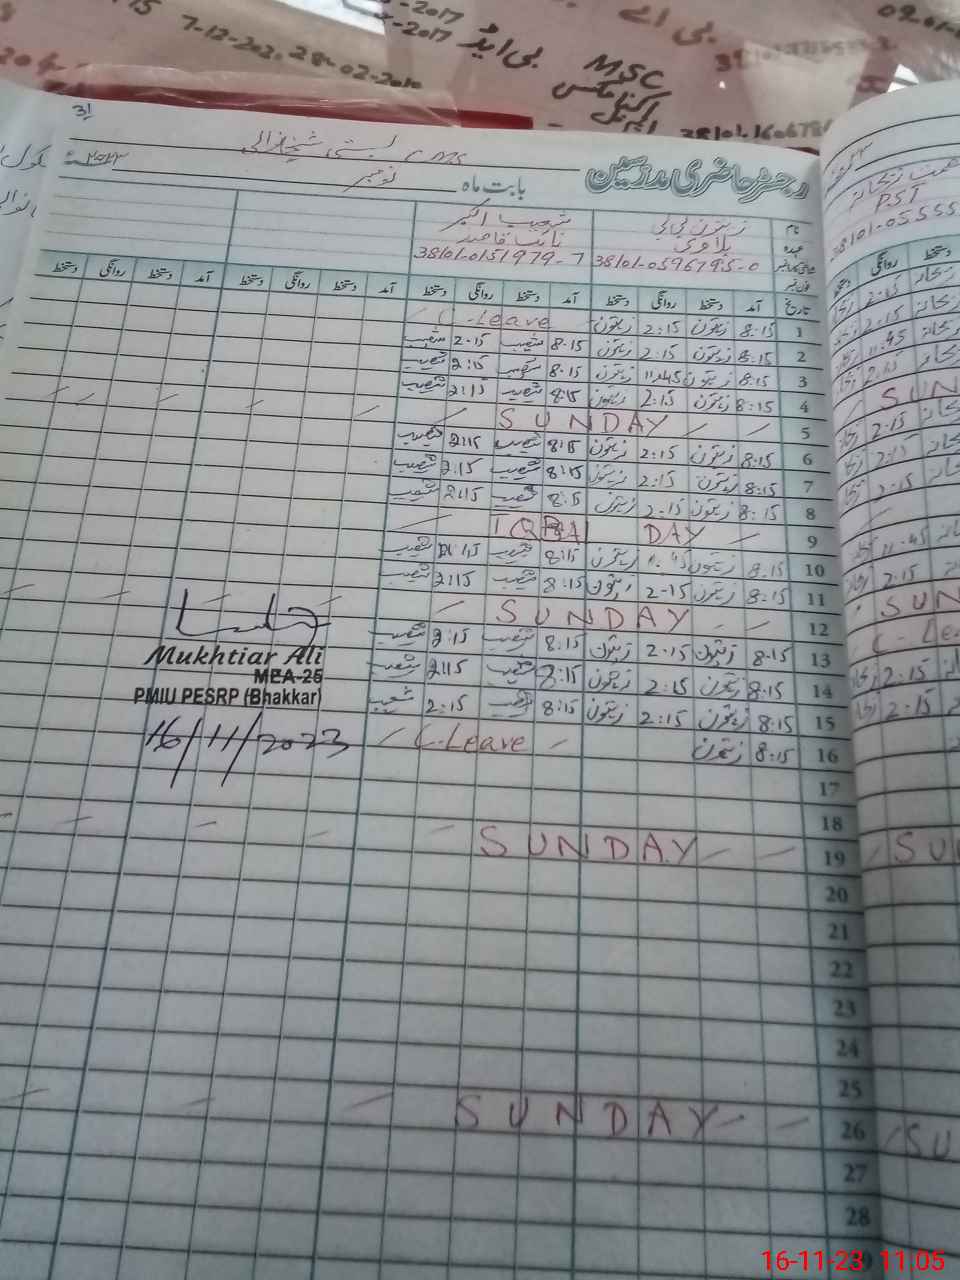 7-12-202. 28-02-2010
2017
-2017
بی ایڈ
MSC
بی اے
09-01-
31
رجسٹر حاضری مدرسین
CMS بستی شیخانوالی
بابت ماہ نومبر
نام زیتون بی بی شعیب اکبر
عہدہ بلاوی نائب قاصد
38101-0596795-0 38101-0151979-7
تاریخ آمد دستخط روانگی دستخط آمد دستخط روانگی دستخط آمد دستخط روانگی دستخط آمد دستخط روانگی دستخط
1 8:15 زیتون 2:15 زیتون C-Leave
2 8:15 زیتون 2:15 زیتون 8:15 شعیب 2:15 شعیب
3 8:15 زیتون 11:45 زیتون 8:15 شعیب 2:15 شعیب
4 8:15 زیتون 2:15 زیتون 8:15 شعیب 2:15 شعیب
5 SUNDAY
6 8:15 زیتون 2:15 زیتون 8:15 شعیب 2:15 شعیب
7 8:15 زیتون 2:15 زیتون 8:15 شعیب 2:15 شعیب
8 8:15 زیتون 2:15 زیتون 8:15 شعیب 2:15 شعیب
9 IQBAL DAY
10 8:15 زیتون 11:45 زیتون 8:15 شعیب شعیب
11 8:15 زیتون 2-15 زیتون 8:15 شعیب 2:15 شعیب
12 SUNDAY
13 8:15 زیتون 2:15 زیتون 8:15 شعیب 2:15 شعیب
14 8:15 زیتون 2:15 زیتون 8:15 شعیب 2:15 شعیب
15 8:15 زیتون 2:15 زیتون 8:15 شعیب 2:15 شعیب
16 8:15 زیتون C-Leave
17
18
19 SUNDAY
20
21
22
23
24
25
26 SUNDAY
27
28
Mukhtiar Ali
MEA-25
PMIU PESRP (Bhakkar)
16/11/2023
PST
38101-05555
16-11-23 11:05